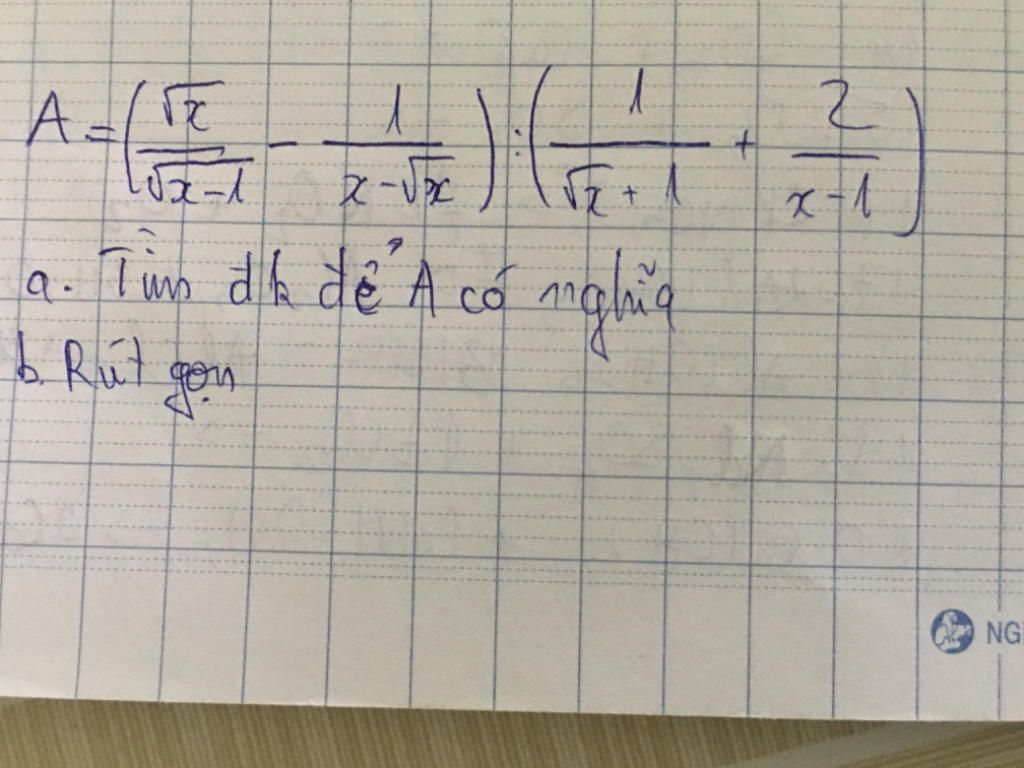 A = (√x/√x-1 - 1/x-√x) : (1/√x+1 + 2/x-1)
a. Tìm đk để A có nghĩa
b. Rút gọn
NG